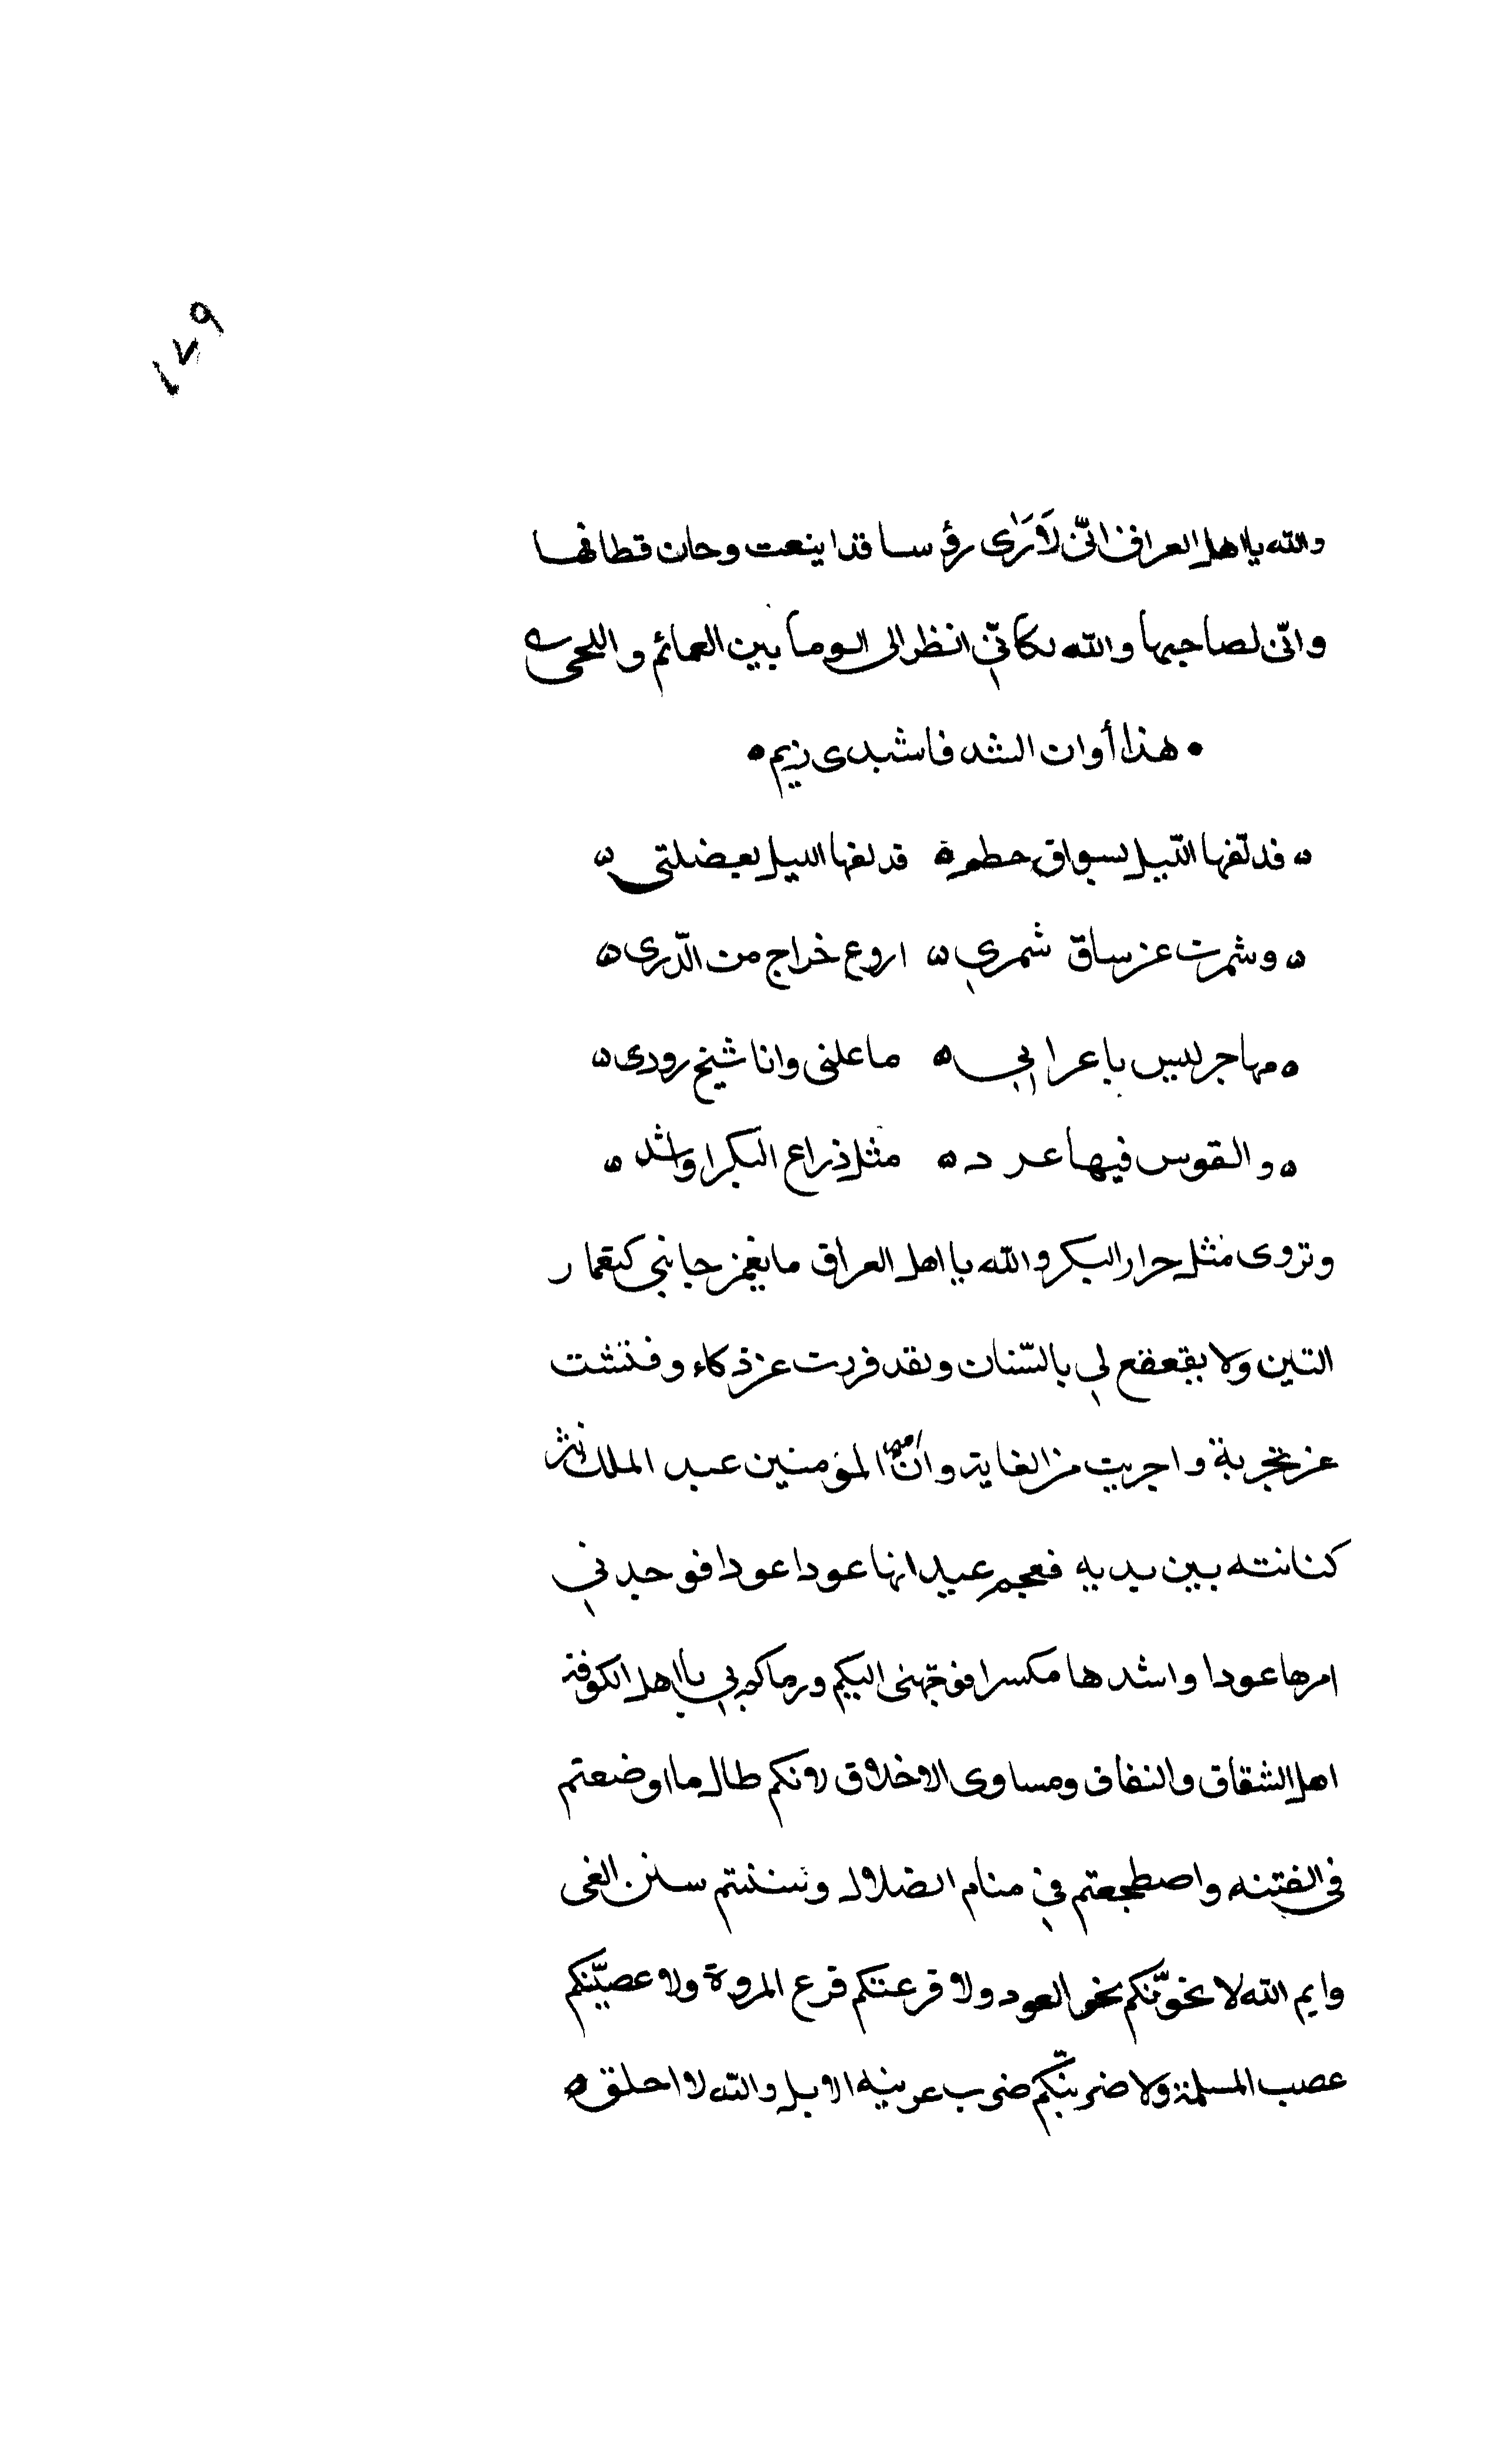 ١٧٩
والله يا اهل العراق انّى لَأَرَى رؤسا قد اينعت وحان قطافها
وانّى لصاحبها والله لكانّي انظر الى الوما بين العمائم واللحى ه
• هذا أوان الشد فاشدى زيم •
ه قد لّفها اللّيل بسواق حطم ه قد لفها الليل بعضلتى ه
ه وشمرت عن ساق شمري ه اروع خراج من الدّرى ه
ه مهاجر ليس باعرابي ه ما علنى وانا شيخ رودى ه
ه والقوس فيها عرد ه مثل ذراع البكر او اشد ه
وتروى مثل جرار البكر والله يا اهل العراق ما يغمز جانبى كتغمار
التين ولا يقعقع لي بالشنان ولقد فررت عن ذكاء وفتشت
عن تجربة واجريت من الغاية وانّ امير المؤمنين عبد الملك نثر
كنانته بين يديه فعجم عيدانها عودا عودا فوجدني
امرها عودا واشدها مكسرا فوجّهنى اليكم ورماكم بي يا اهل الكوفة
اهل الشقاق والنفاق ومساوى الاخلاق لانكم طال ما اوضعتم
فى الفتنه واضطجعتم في منام الضلال وسننتم سنن الغى
وايم الله لا نحوّنكم نحو العود ولا قرعنكم قرع المروة ولا عصبّنكم
عصب السلمة ولا ضربنّكم ضرب غريبه الابل والله لا احلق ه